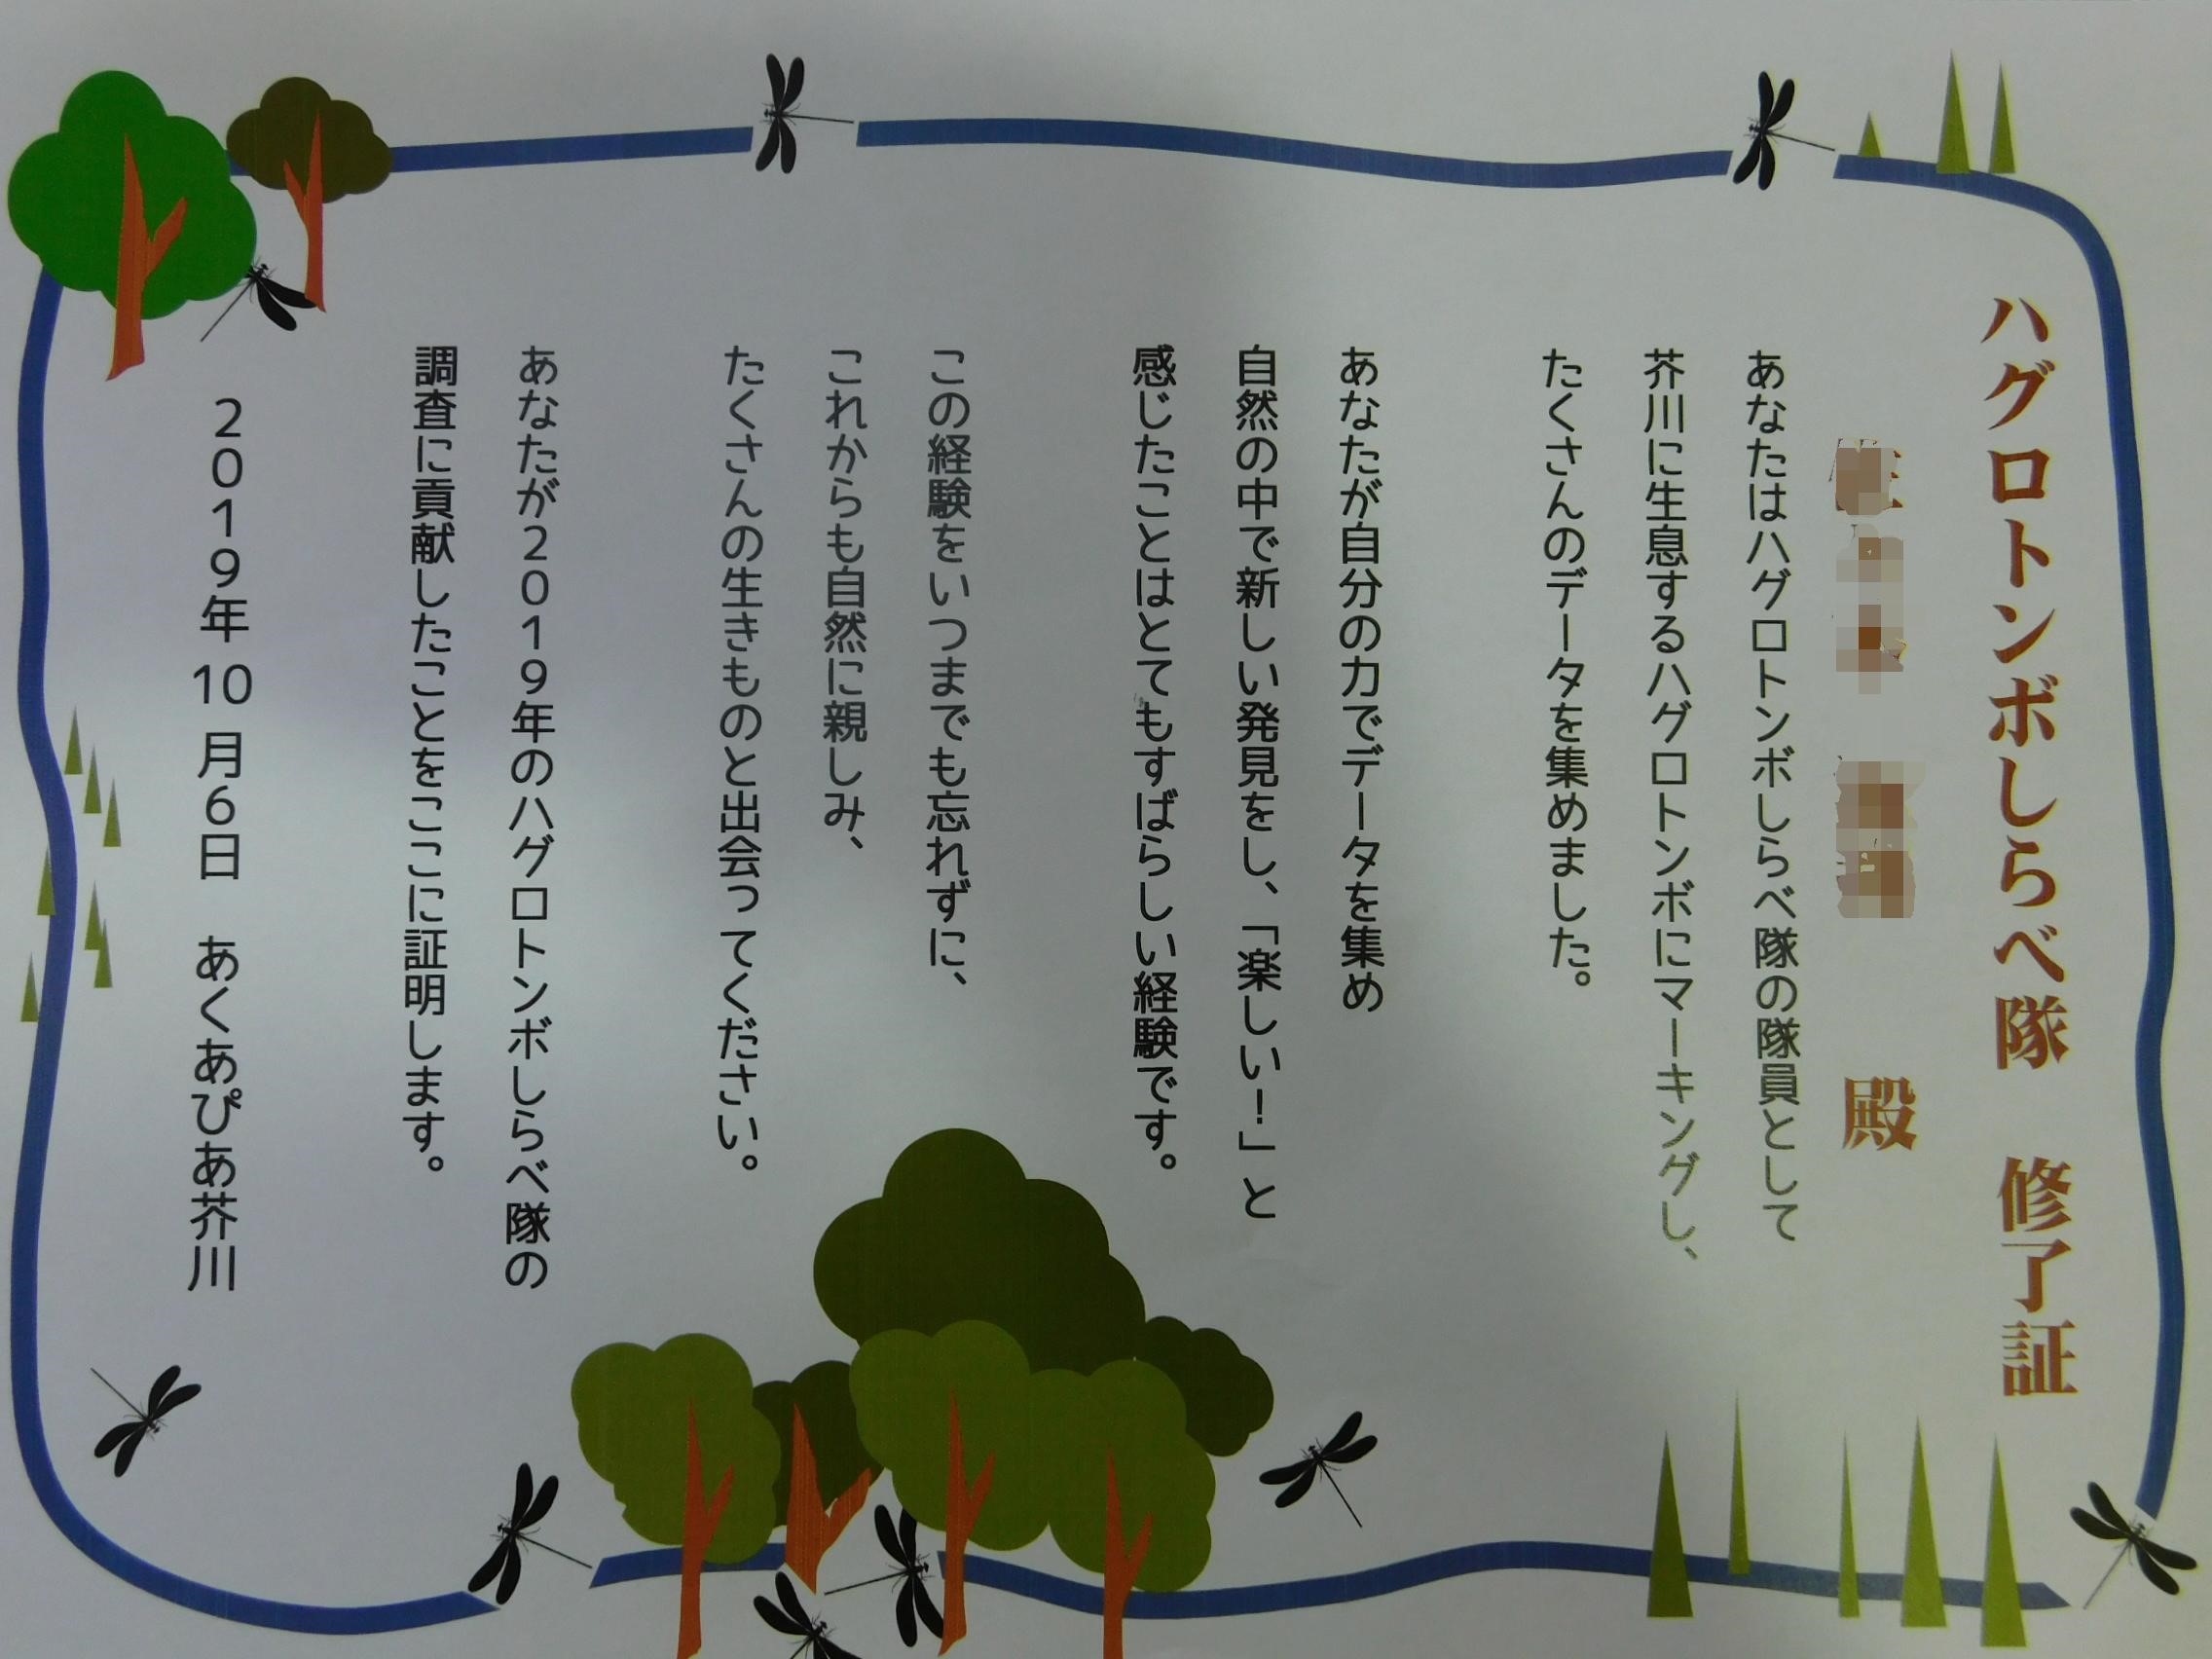 ハグロトンボしらべ隊　修了証
殿
あなたはハグロトンボしらべ隊の隊員として
芥川に生息するハグロトンボにマーキングし、
たくさんのデータを集めました。
あなたが自分の力でデータを集め
自然の中で新しい発見をし、「楽しい！」と
感じたことはとてもすばらしい経験です。
この経験をいつまでも忘れずに、
これからも自然に親しみ、
たくさんの生きものと出会ってください。
あなたが２０１９年のハグロトンボしらべ隊の
調査に貢献したことをここに証明します。
２０１９年 10 月６日　あくあぴあ芥川